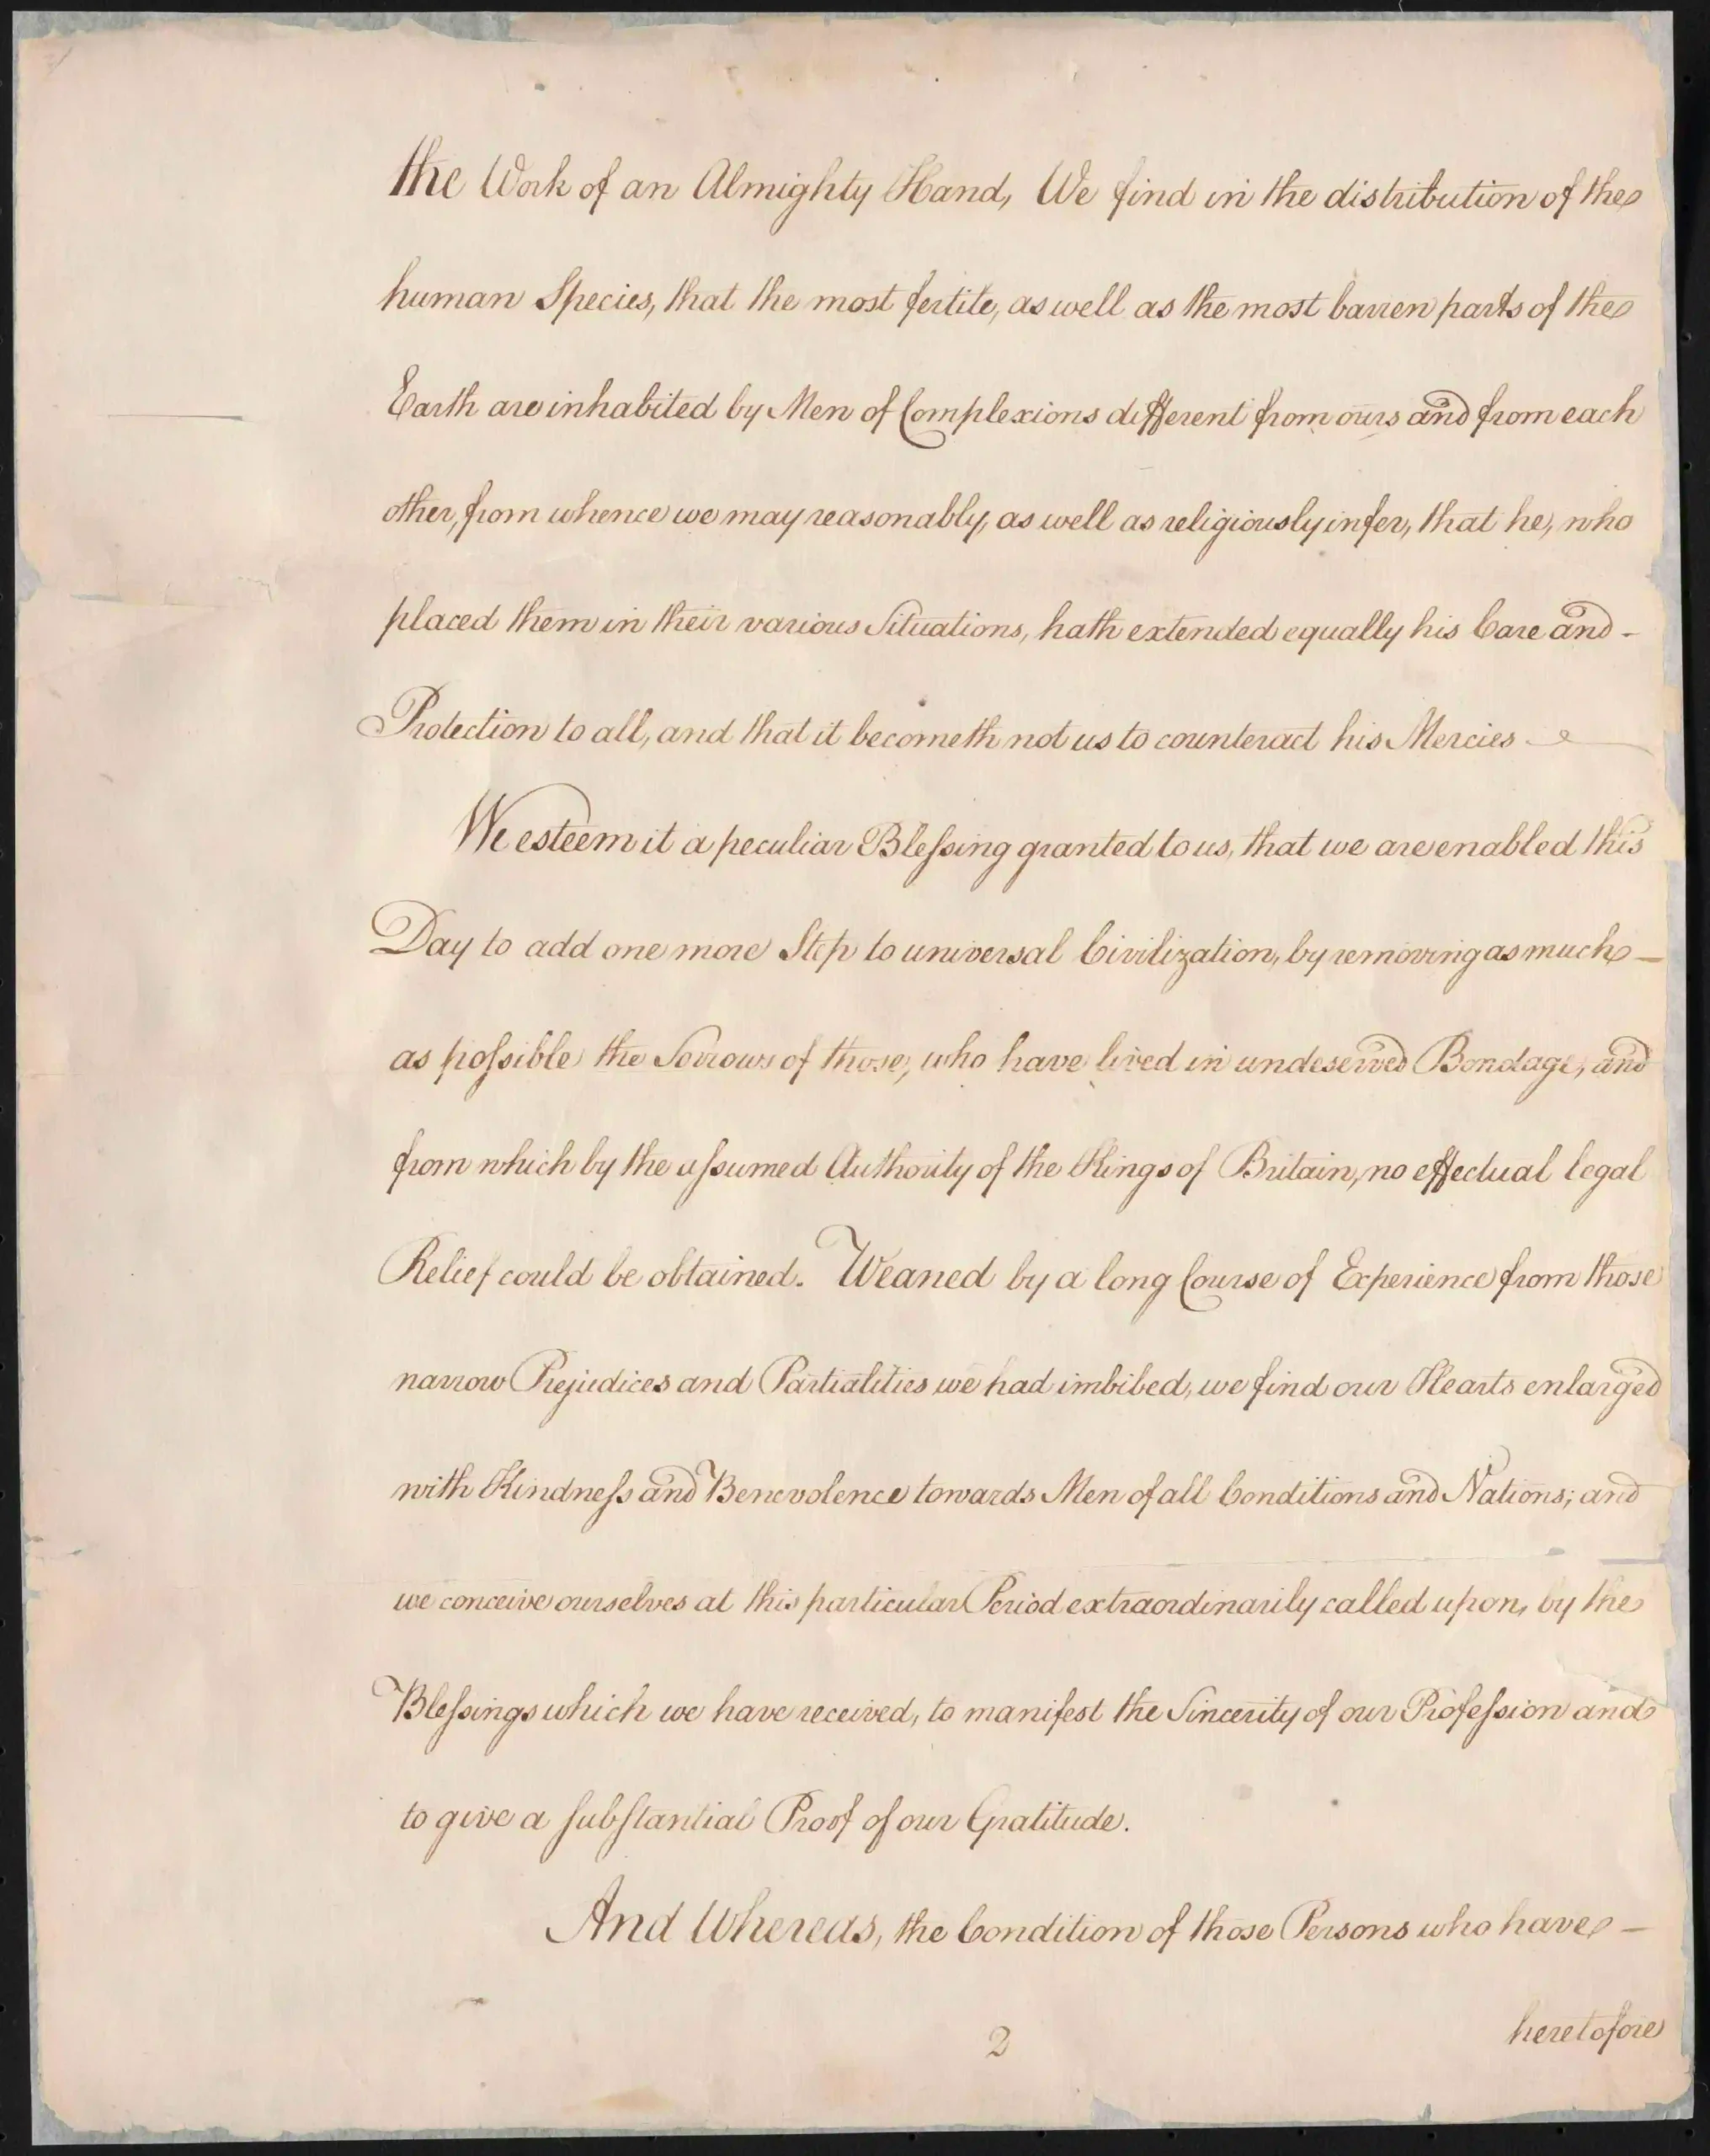 the Work of an Almighty Hand, We find in the distribution of the
human Species, that the most fertile, as well as the most barren parts of the
Earth are inhabited by Men of Complexions different from ours and from each
other, from whence we may reasonably, as well as religiously infer, that he, who
placed them in their various Situations, hath extended equally his Care and -
Protection to all, and that it becometh not us to counteract his Mercies
We esteem it a peculiar Blessing granted to us, that we are enabled this
Day to add one more Step to universal Civilization, by removing as much -
as possible the Sorrows of those, who have lived in undeserved Bondage, and
from which by the assumed Authority of the Kings of Britain, no effectual legal
Relief could be obtained. Weaned by a long Course of Experience from those
narrow Prejudices and Partialities we had imbibed, we find our Hearts enlarged
with Kindness and Benevolence towards Men of all Conditions and Nations; and
we conceive ourselves at this particular Period extraordinarily called upon, by the
Blessings which we have received, to manifest the Sincerity of our Profession and
to give a substantial Proof of our Gratitude.
And Whereas, the Condition of those Persons who have -
heretofore
2